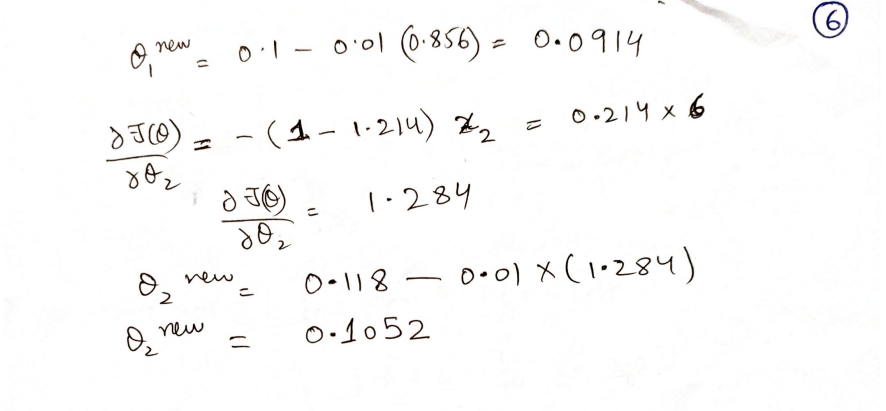 6
θ₁ⁿᵉʷ = 0.1 - 0.01 (0.856) = 0.0914
∂J(θ)/∂θ₂ = -(1 - 1.214) x₂ = 0.214 × 6
∂J(θ)/∂θ₂ = 1.284
θ₂ⁿᵉʷ = 0.118 - 0.01 × (1.284)
θ₂ⁿᵉʷ = 0.1052